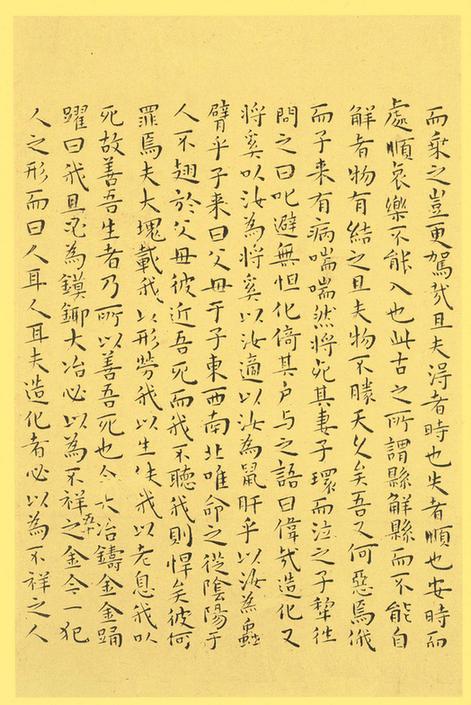 而乘之豈更駕哉且夫得者時也失者順也安時而
處順哀樂不能入也此古之所謂縣解縣而不能自
解者物有結之且夫物不勝天久矣吾又何惡焉俄
而子来有病喘喘然將死其妻子環而泣之子犂往
問之曰叱避無怛化倚其户与之語曰偉哉造化又
將奚以汝為將奚以汝適以汝為鼠肝乎以汝為蟲
臂乎子来曰父母于子東西南北唯命之從陰陽于
人不翅於父母彼近吾死而我不聽我則悍矣彼何
罪焉夫大塊載我以形勞我以生佚我以老息我以
死故善吾生者乃所以善吾死也今大冶鑄金金踊
躍曰我且必為鏌鋣大冶必以為不祥之金今一犯
五十
人之形而曰人耳人耳夫造化者必以為不祥之人